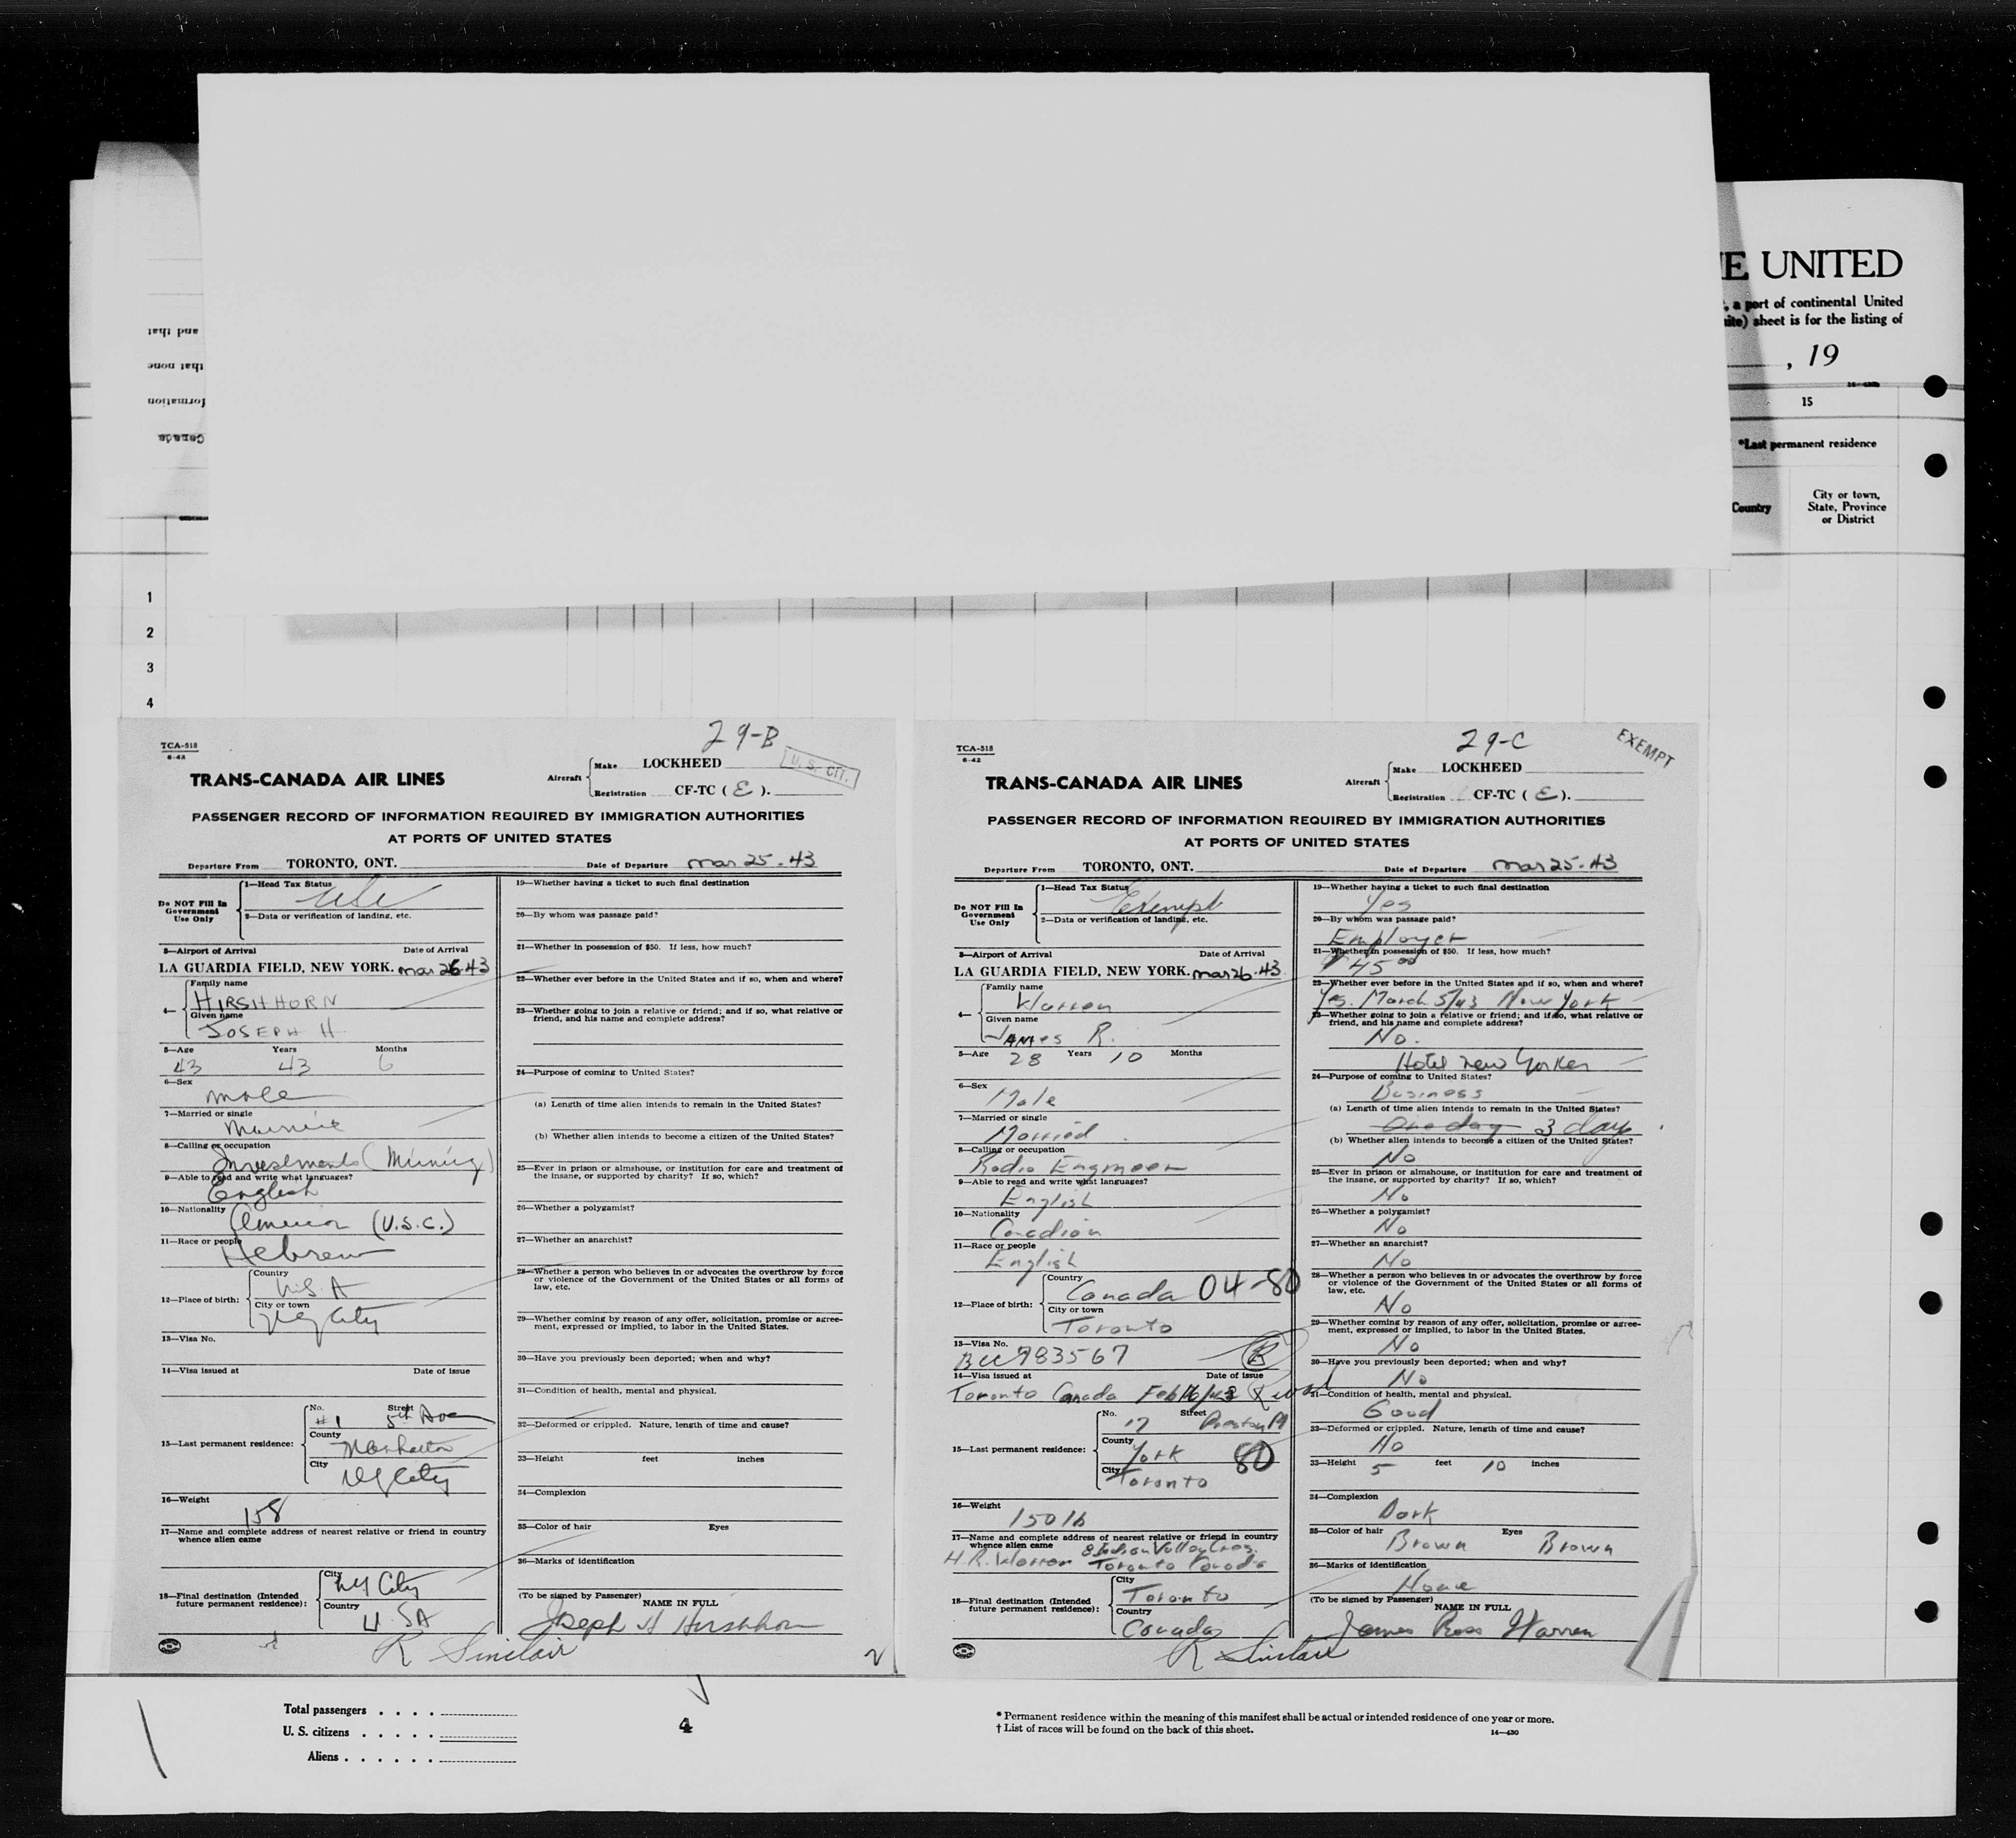 E UNITED
, a port of continental United
ite) sheet is for the listing of
, 19
15
*Last permanent residence
Country
City or town,
State, Province
or District
and that
that none
formation
Canada
1
2
3
4
29-B
TCA-518
TRANS-CANADA AIR LINES
Aircraft
Make LOCKHEED
Registration CF-TC ( E ).
U. S. CIT.
PASSENGER RECORD OF INFORMATION REQUIRED BY IMMIGRATION AUTHORITIES
AT PORTS OF UNITED STATES
Departure From TORONTO, ONT. Date of Departure Mar 25-43
Do NOT Fill In
Government
Use Only
1—Head Tax Status
2—Data or verification of landing, etc.
3—Airport of Arrival Date of Arrival
LA GUARDIA FIELD, NEW YORK. Mar 26-43
4—
Family name
HIRSHHORN
Given name
JOSEPH H
5—Age Years Months
43 43 6
6—Sex
male
7—Married or single
Married
8—Calling or occupation
Investments (Mining)
9—Able to read and write what languages?
English
10—Nationality
(U.S.C.)
11—Race or people
Hebrew
12—Place of birth:
Country
U.S.A
City or town
NY City
13—Visa No.
14—Visa issued at Date of issue
15—Last permanent residence:
No. Street
#1 5th Ave
County
Manhattan
City
NY City
16—Weight
158
17—Name and complete address of nearest relative or friend in country
whence alien came
18—Final destination (Intended
future permanent residence):
City
NY City
Country
U.SA
19—Whether having a ticket to such final destination
20—By whom was passage paid?
21—Whether in possession of $50. If less, how much?
22—Whether ever before in the United States and if so, when and where?
23—Whether going to join a relative or friend; and if so, what relative or
friend, and his name and complete address?
24—Purpose of coming to United States?
(a) Length of time alien intends to remain in the United States?
(b) Whether alien intends to become a citizen of the United States?
25—Ever in prison or almshouse, or institution for care and treatment of
the insane, or supported by charity? If so, which?
26—Whether a polygamist?
27—Whether an anarchist?
28—Whether a person who believes in or advocates the overthrow by force
or violence of the Government of the United States or all forms of
law, etc.
29—Whether coming by reason of any offer, solicitation, promise or agree-
ment, expressed or implied, to labor in the United States.
30—Have you previously been deported; when and why?
31—Condition of health, mental and physical.
32—Deformed or crippled. Nature, length of time and cause?
33—Height feet inches
34—Complexion
35—Color of hair Eyes
36—Marks of identification
(To be signed by Passenger)
NAME IN FULL
Joseph H Hirshhorn
R Sinclair
29-C
EXEMPT
TCA-518
6-42
TRANS-CANADA AIR LINES
Aircraft
Make LOCKHEED
Registration CF-TC ( E ).
PASSENGER RECORD OF INFORMATION REQUIRED BY IMMIGRATION AUTHORITIES
AT PORTS OF UNITED STATES
Departure From TORONTO, ONT. Date of Departure Mar 25-43
Do NOT Fill In
Government
Use Only
1—Head Tax Status
Exempt
2—Data or verification of landing, etc.
3—Airport of Arrival Date of Arrival
LA GUARDIA FIELD, NEW YORK. Mar 26-43
4—
Family name
Warren
Given name
James R.
5—Age Years Months
28 10
6—Sex
Male
7—Married or single
Married
8—Calling or occupation
Radio Engineer
9—Able to read and write what languages?
English
10—Nationality
Canadian
11—Race or people
English
12—Place of birth:
Country
Canada 04-80
City or town
Toronto
13—Visa No.
BCC983567
14—Visa issued at Date of issue
Toronto Canada Feb 16/43
15—Last permanent residence:
No. Street
17 Preston Pl
County
York 80
City
Toronto
16—Weight
150 lb
17—Name and complete address of nearest relative or friend in country
whence alien came
H.R. Warren 8 Indian Valley Cres.
Toronto Canada
18—Final destination (Intended
future permanent residence):
City
Toronto
Country
Canada
19—Whether having a ticket to such final destination
Yes
20—By whom was passage paid?
Employer
21—Whether in possession of $50. If less, how much?
$ 45 00
22—Whether ever before in the United States and if so, when and where?
Yes. March 5/43 New York
23—Whether going to join a relative or friend; and if so, what relative or
friend, and his name and complete address?
No.
Hotel New Yorker
24—Purpose of coming to United States?
Business
(a) Length of time alien intends to remain in the United States?
One day 3 days
(b) Whether alien intends to become a citizen of the United States?
No
25—Ever in prison or almshouse, or institution for care and treatment of
the insane, or supported by charity? If so, which?
No
26—Whether a polygamist?
No
27—Whether an anarchist?
No
28—Whether a person who believes in or advocates the overthrow by force
or violence of the Government of the United States or all forms of
law, etc.
No
29—Whether coming by reason of any offer, solicitation, promise or agree-
ment, expressed or implied, to labor in the United States.
No
30—Have you previously been deported; when and why?
No
31—Condition of health, mental and physical.
Good
32—Deformed or crippled. Nature, length of time and cause?
No
33—Height 5 feet 10 inches
34—Complexion
Dark
35—Color of hair Eyes
Brown Brown
36—Marks of identification
None
(To be signed by Passenger)
NAME IN FULL
James Ross Warren
R Sinclair
Total passengers . . . .
U. S. citizens . . . . .
Aliens . . . . . .
4
* Permanent residence within the meaning of this manifest shall be actual or intended residence of one year or more.
† List of races will be found on the back of this sheet.
14—430